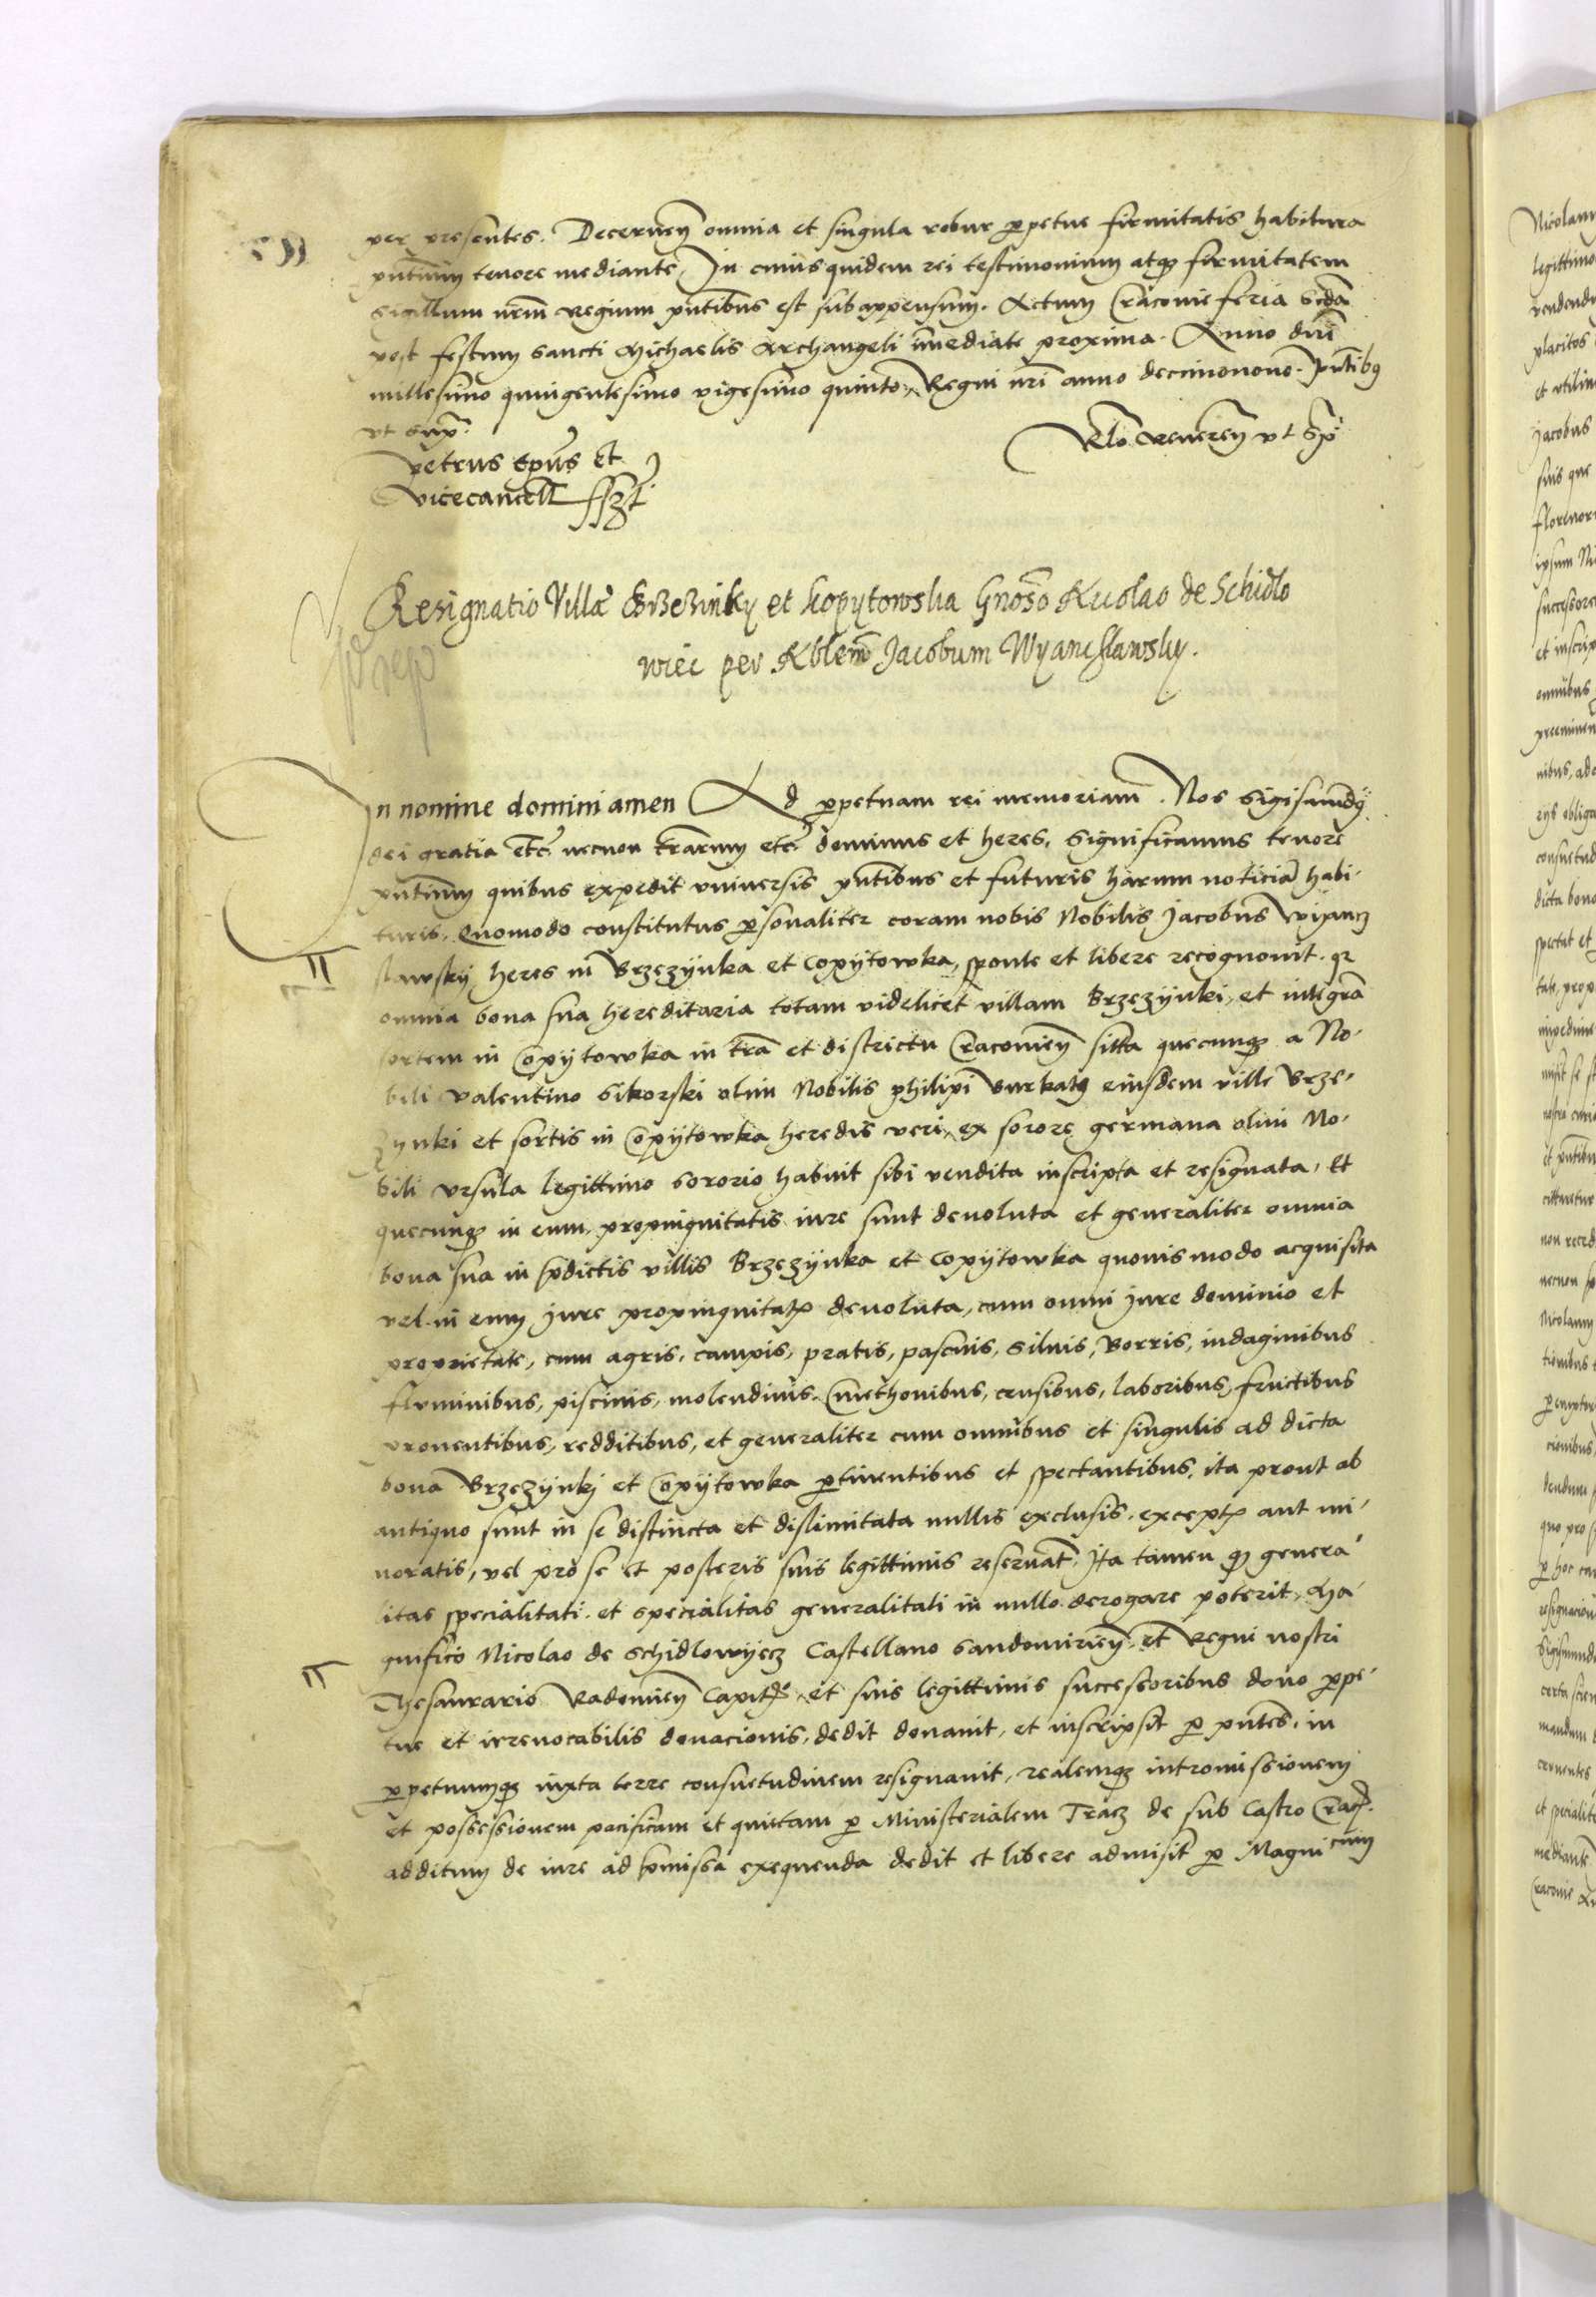 per presentes. Decernen omnia et singula robur perpetue firmitatis habitura
pntium tenore mediante, In cuius quidem rei testimonium atque firmitatem
Sigillum nrm Regium pntibus est subappensum. Actum Cracouie feria scda
post festum sancti Michaelis Archangeli immediate proxima. Anno dni
millesimo quingentesimo vigesimo quinto, Regni nri anno decimonono. Pntibus
vt supra.
Rlo Reueren vt supra
Petrus Epus Et
Vicecancell sszt
Resignatio Villæ Brzezinky et kopytowska Gnoso Nicolao de Schidlo
wiec per Nblem Jacobum Wyanczlawsky.
In nomine domini amen Ad perpetuam rei memoriam. Nos Sigismundus
dei gratia etc necnon trarum etc dominus et heres. Significamus tenore
pntium quibus expedit vniuersis pntibus et futuris harum noticia habi-
turis. Quomodo constitutus personaliter coram nobis Nobilis Jacobus Vijancz
slawskij heres in Brzezijnka et Copijtowka, sponte et libere recognouit. quia
omnia bona sua hereditaria totam videlicet villam Brzezijnki, et integra
sortem in Copijtowka in tra et districtu Cracouien sitta quecunque a No-
bili Valentino Sikorski olim Nobilis Philipi Burkath eiusdem ville Brze-
zynki et sortis in Copijtowka heredis veri, ex sorore germana olim No-
bili Vrsula legittimo sororio habuit sibi vendita inscripta et resignata, Et
quecunque in eum propinquitatis iure sunt deuoluta et generaliter omnia
bona sua in predictis villis Brzezijnka et Copijtowka quouismodo acquisita
vel in eum Jure propinquitatis deuoluta, cum omni Jure dominio et
proprietate, cum agris, campis, pratis, pascuis, siluis, Borris, indaginibus
fluminibus, piscinis, molendinis, Cmethonibus, censibus, laboribus, fructibus
prouentibus, redditibus, et generaliter cum omnibus et singulis ad dicta
bona Brzezijnkj et Copijtowka pertinentibus et spectantibus, ita prout ab
antiquo sunt in se distincta et dislimitata nullis exclusis, exceptis aut mi-
noratis, vel pro se et posteris suis legittimis reseruat. Ita tamen quod genera-
litas specialitati et specialitas generalitati in nullo derogare poterit, Ma-
gnifico Nicolao de Schidlowijecz Castellano Sandomirien et Regni nostri
Thesaurario Radomien Capitneo, et suis legittimis successoribus dono perpe-
tue et irreuocabilis donacionis, dedit donauit, et inscripsit per pntes, in
perpetuumque iuxta terre consuetudinem resignauit, realemque intromissionem
et possessionem pacificam et quietam per Ministerialem Tracz de sub Castro Crac.
additum de iure ad premissa exequenda dedit et libere admisit per Magnicum